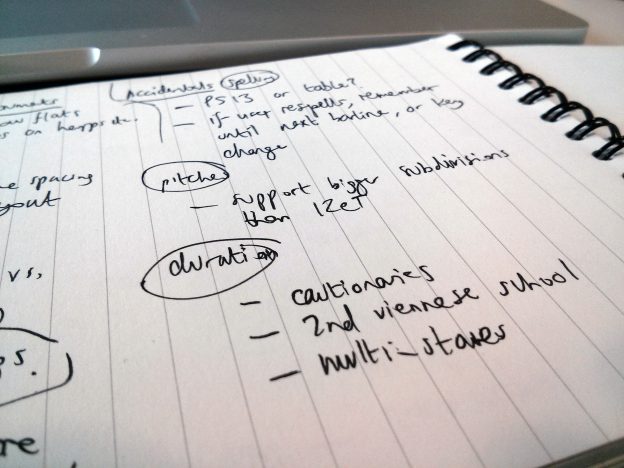 Accidentals spelling
- PS13 or table?
- If user respells, remember
until next barline, or key
change
pitches
- support bigger subdivisions
than 12ET
duration
- cautionaries
- 2nd viennese school
- multi-staves
flats
on harps etc.
spacing
vs.